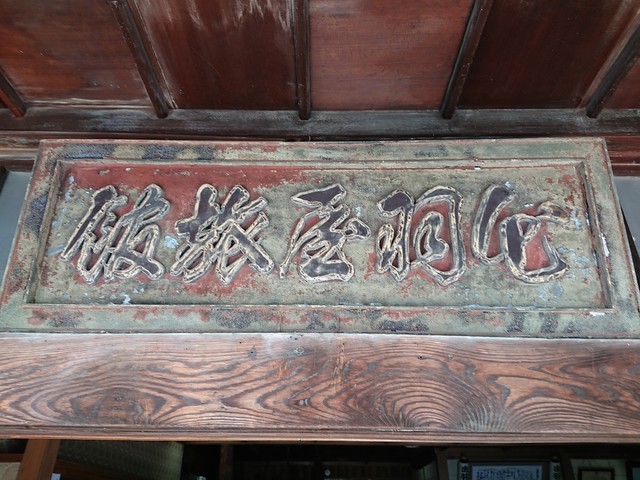 出羽屋旅館